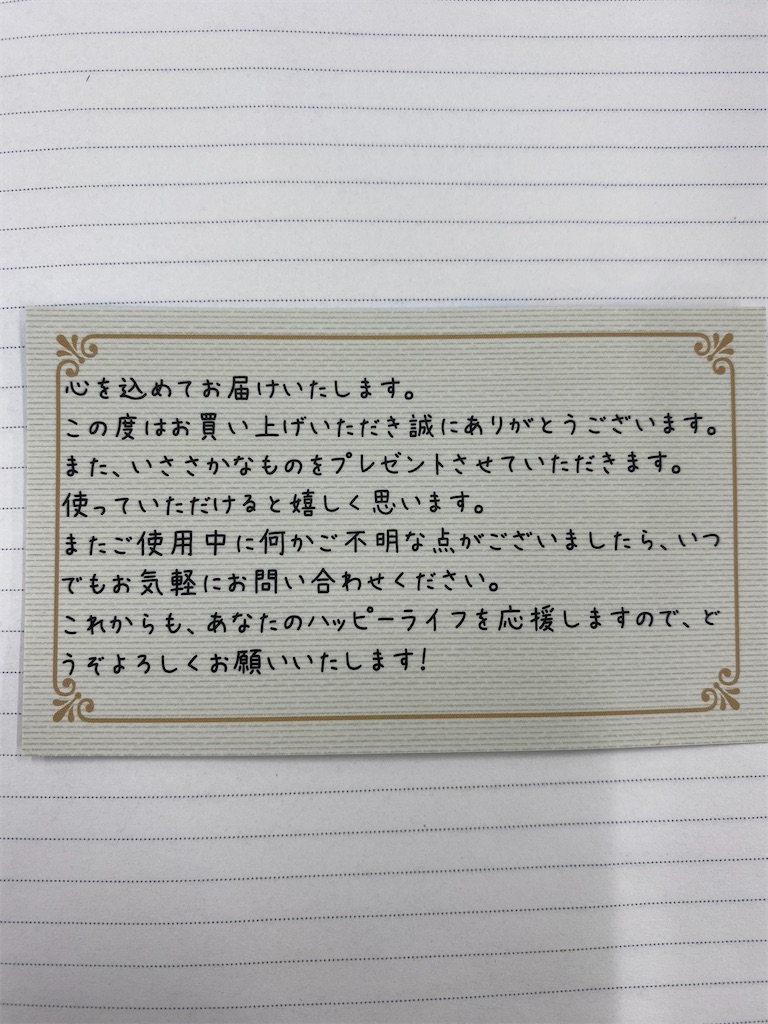 心を込めてお届けいたします。
この度はお買い上げいただき誠にありがとうございます。
また、いささかなものをプレゼントさせていただきます。
使っていただけると嬉しく思います。
またご使用中に何かご不明な点がございましたら、いつ
でもお気軽にお問い合わせください。
これからも、あなたのハッピーライフを応援しますので、ど
うぞよろしくお願いいたします!